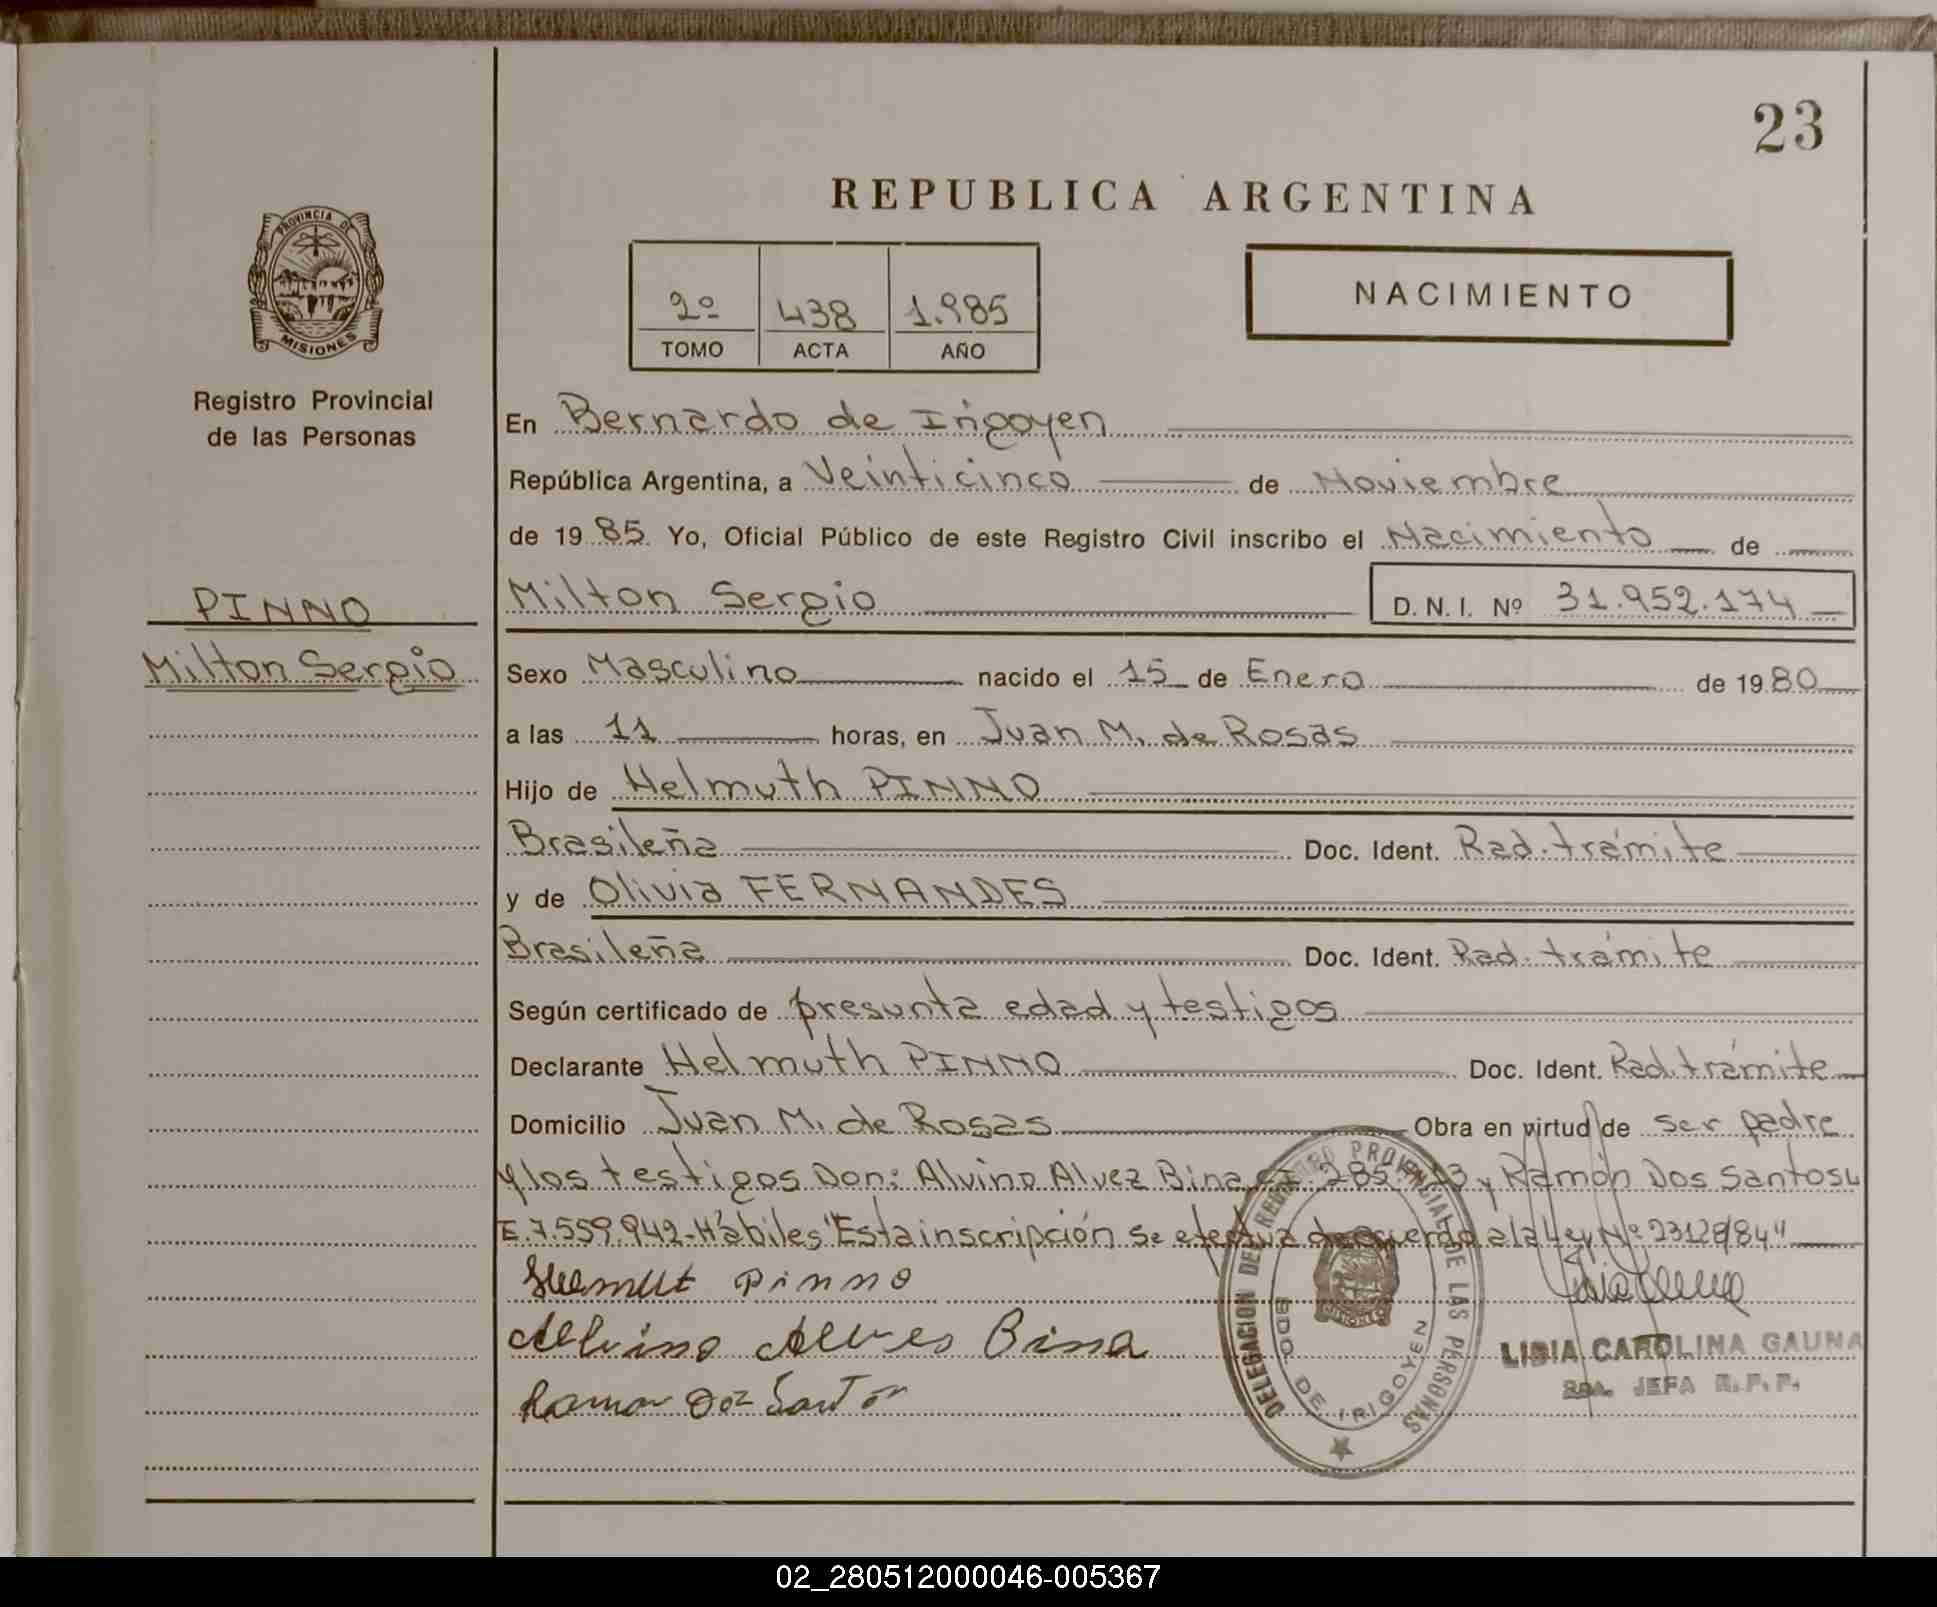 23
REPUBLICA ARGENTINA
PROVINCIA DE
MISIONES
Registro Provincial
de las Personas
2º 438 1.985
TOMO ACTA AÑO
NACIMIENTO
En Bernardo de Irigoyen
República Argentina, a Veinticinco de Noviembre
de 1985. Yo, Oficial Público de este Registro Civil inscribo el Nacimiento de
Milton Sergio D. N. I. Nº 31.952.174
PINNO
Milton Sergio
Sexo Masculino nacido el 15 de Enero de 1980
a las 11 horas, en Juan M. de Rosas
Hijo de Helmuth PINNO
Brasileña Doc. Ident. Rad. trámite
y de Olivia FERNANDES
Brasileña Doc. Ident. Rad. trámite
Según certificado de presunta edad y testigos
Declarante Helmuth PINNO Doc. Ident. Rad. trámite
Domicilio Juan M. de Rosas Obra en virtud de ser padre
y los testigos Don: Alvino Alvez Bina y Ramón Dos Santos L
E. 7.559.942-Hábiles "Esta inscripción se efectúa de acuerdo a la Ley Nº 23128/84"
Helmut Pinno
Alvino Alves Bina
Ramon Dos Santos
DELEGACION DEL REGISTRO PROVINCIAL DE LAS PERSONAS
BDO. DE IRIGOYEN
LIDIA CAROLINA GAUNA
JEFA R.P.P.
02_280512000046-005367